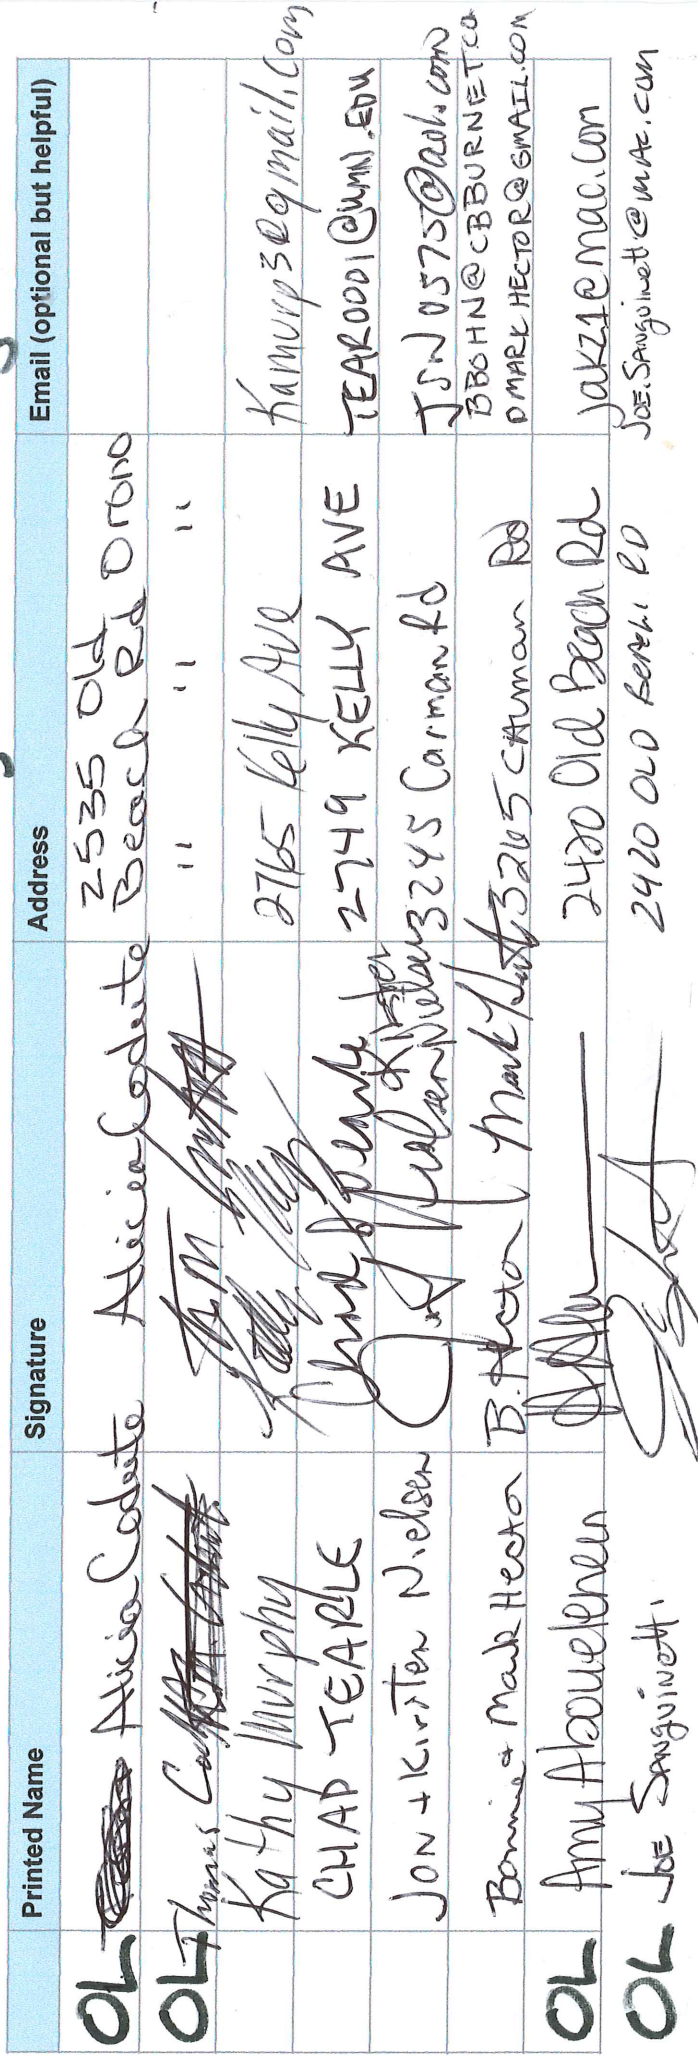 Printed Name Signature Address Email (optional but helpful)
OL Alicia Codute Alicia Codute 2535 Old
Beach Rd Orono
OL Thomas Tom " " "
Kathy Murphy 2765 Kelly Ave Kamurp3@gmail.com
CHAD TEARLE Chad Tearle 2749 KELLY AVE TEAR0001@UMN.EDU
JON + Kirsten Nielsen Nielsen Kirsten
Nielsen 3245 Carman Rd JSN0575@aol.com
Bonnie + Mark Hector B. Hector Mark 3265 CAUman Rd BBOHN@CBBURNET.CO
DMARKHECTOR@GMAIL.COM
OL Amy Abouelenen 2420 Old Beach Rd jakz1@mac.com
OL JOE SANGUINETTI 2420 OLD BEACH RD JOE.SANGUINETTI@MAC.COM